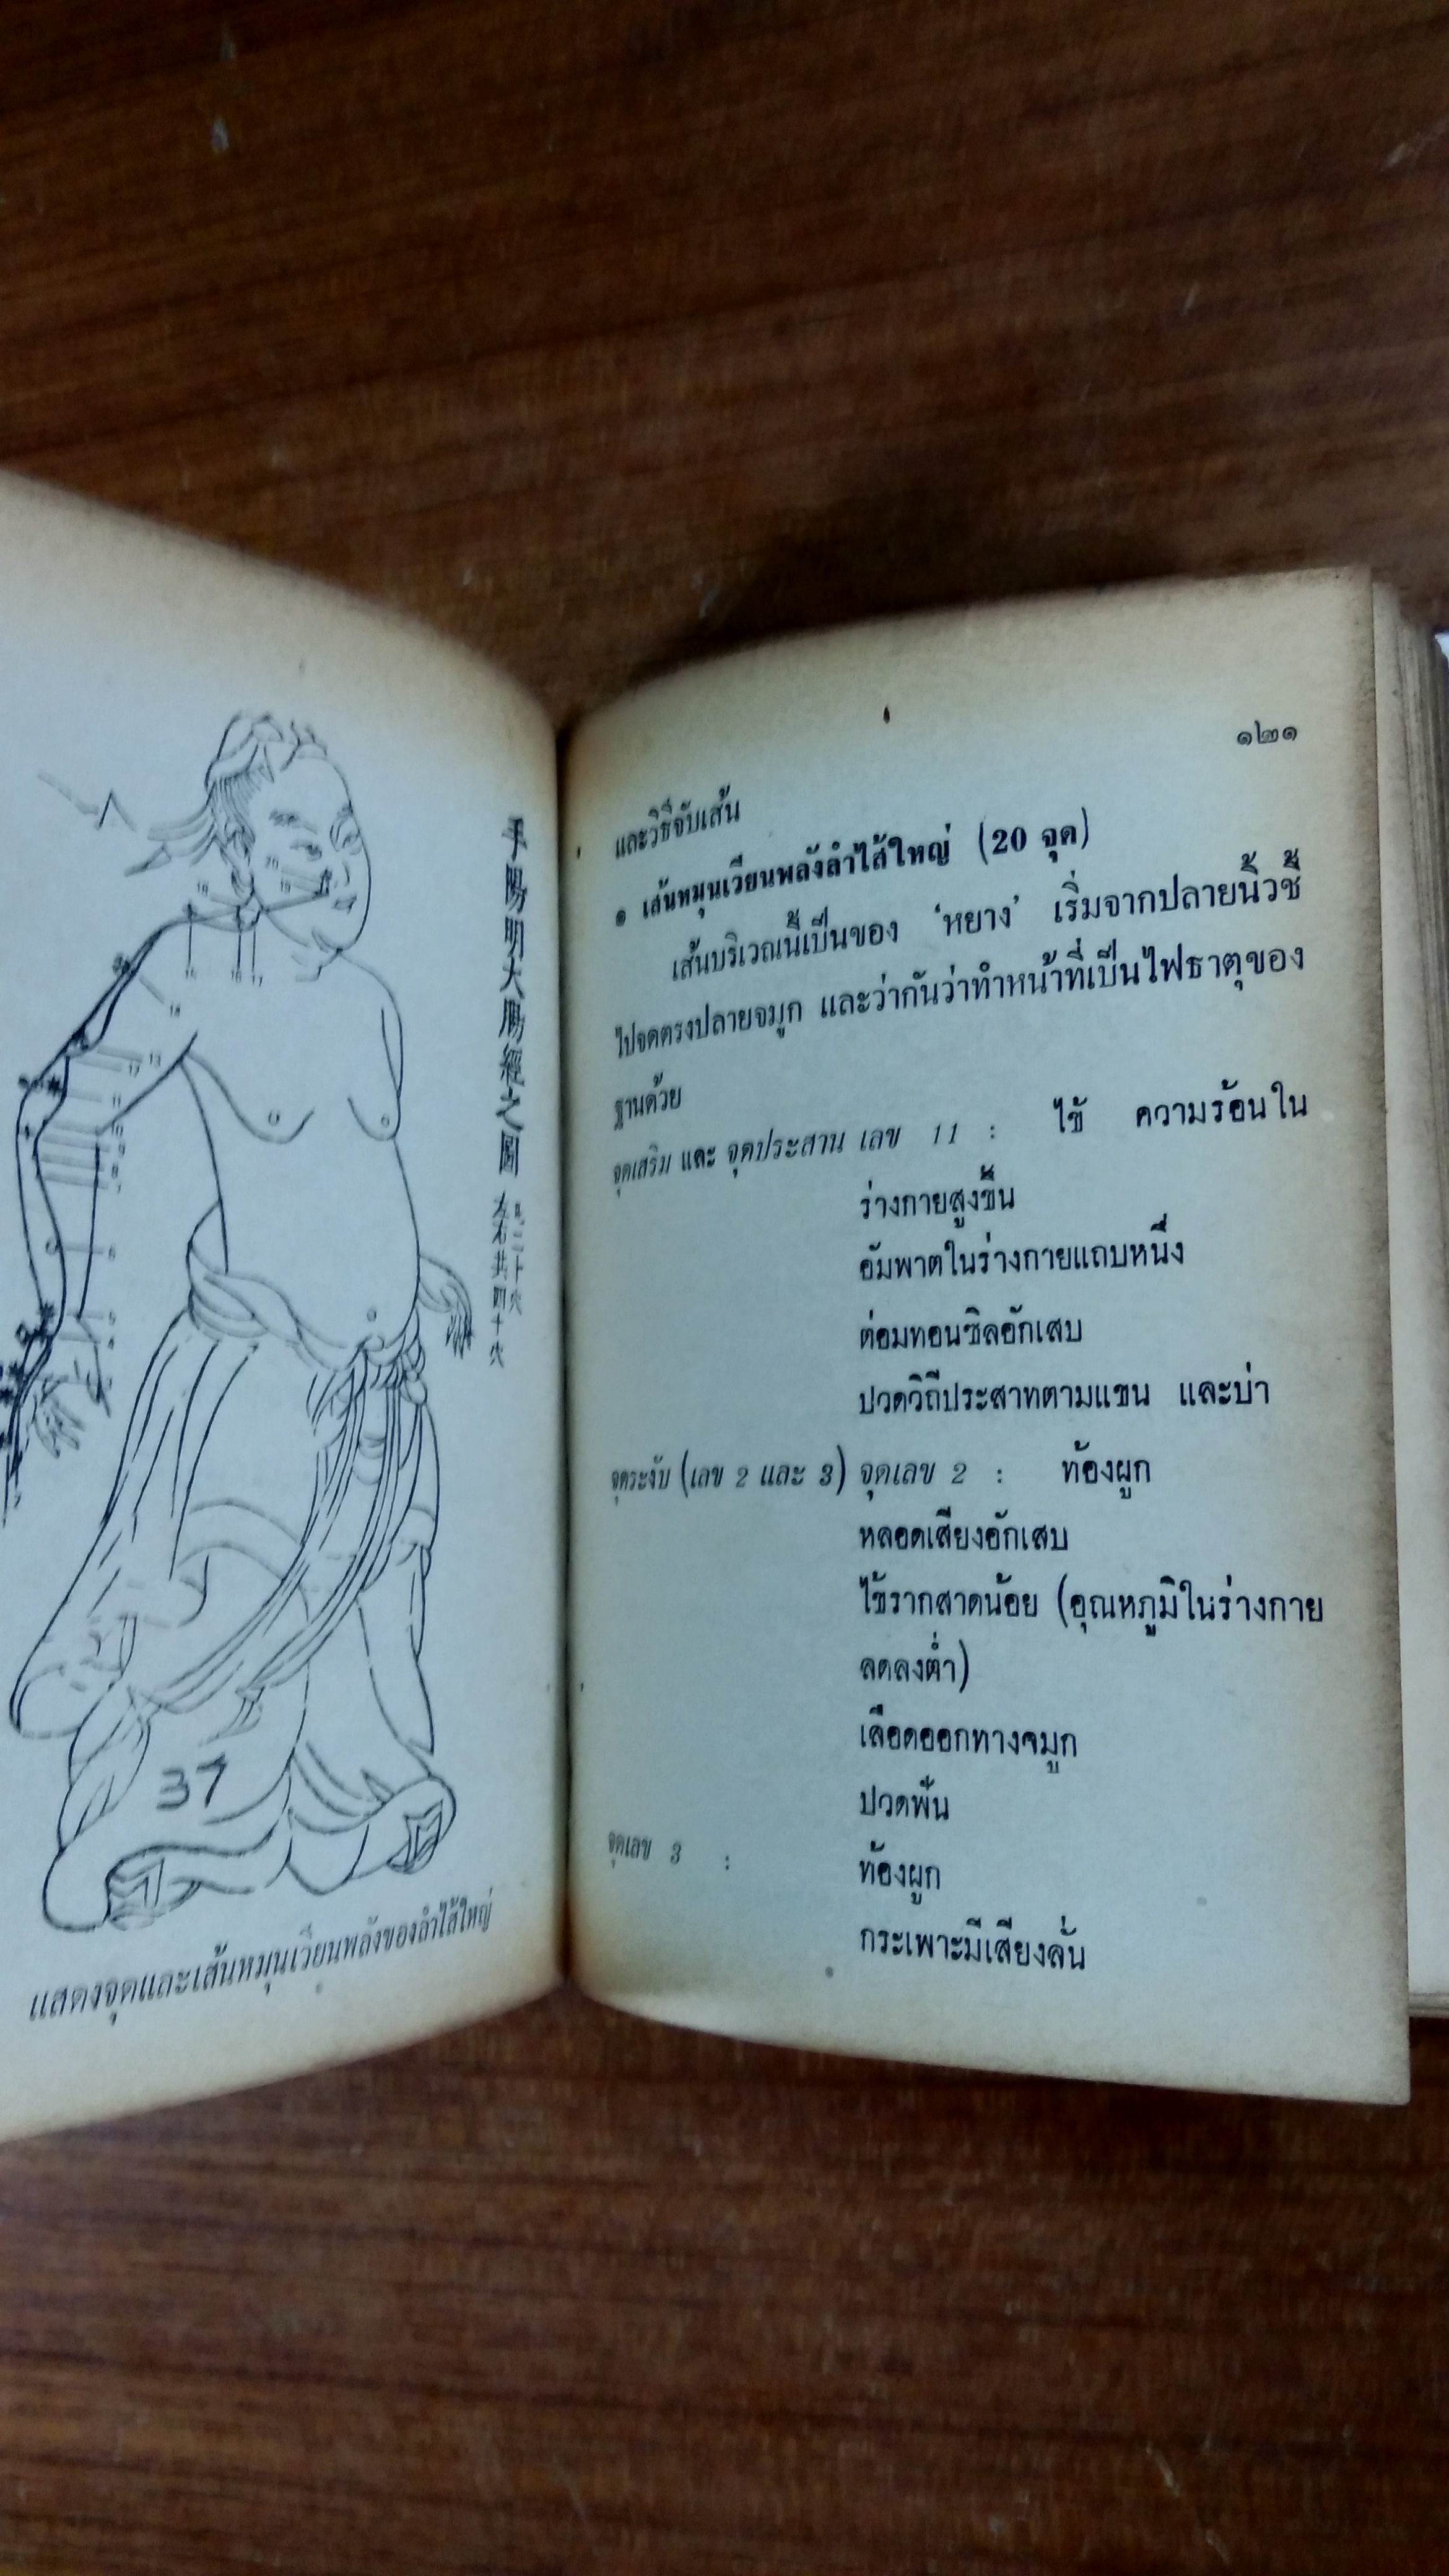 手陽明大腸經之圖
左右共四十穴
37
แสดงจุดและเส้นหมุนเวียนพลังของลำไส้ใหญ่
๑๒๑
และวิธีจับเส้น
๑ เส้นหมุนเวียนพลังลำไส้ใหญ่ (20 จุด)
เส้นบริเวณนี้เป็นของ 'หยาง' เริ่มจากปลายนิ้วชี้
ไปจดตรงปลายจมูก และว่ากันว่าทำหน้าที่เป็นไฟธาตุของ
ฐานด้วย
จุดเสริม และ จุดประสาน เลข 11 : ไข้ ความร้อนใน
ร่างกายสูงขึ้น
อัมพาตในร่างกายแถบหนึ่ง
ต่อมทอนซิลอักเสบ
ปวดวิถีประสาทตามแขน และบ่า
จุดระงับ (เลข 2 และ 3) จุดเลข 2 : ท้องผูก
หลอดเสียงอักเสบ
ไข้รากสาดน้อย (อุณหภูมิในร่างกาย
ลดลงต่ำ)
เลือดออกทางจมูก
ปวดฟัน
จุดเลข 3 : ท้องผูก
กระเพาะมีเสียงลั่น